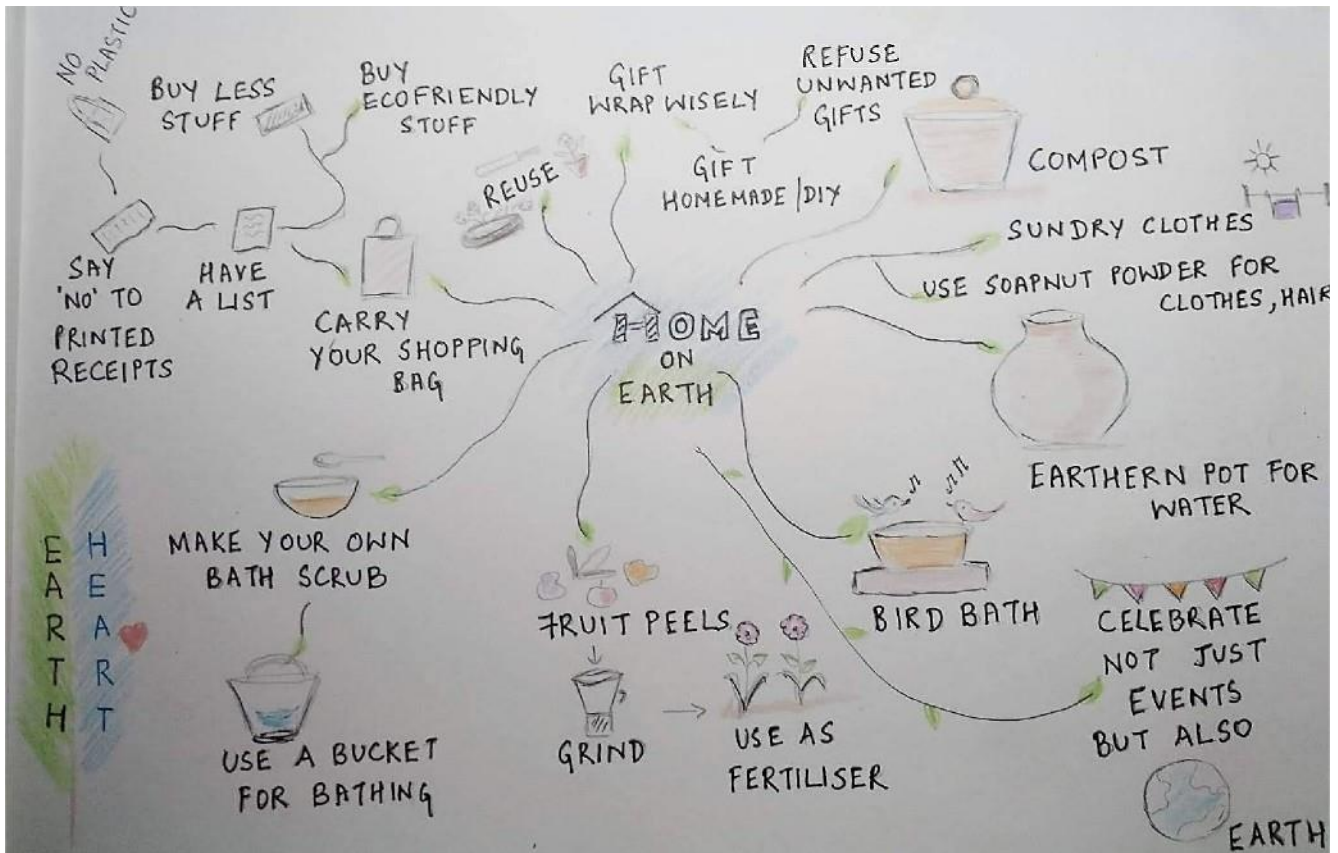 NO
PLASTIC
BUY LESS
STUFF
BUY
ECOFRIENDLY
STUFF
GIFT
WRAP WISELY
REFUSE
UNWANTED
GIFTS
GIFT
HOMEMADE/DIY
REUSE
COMPOST
SUNDRY CLOTHES
USE SOAPNUT POWDER FOR
CLOTHES, HAIR
SAY
'NO' TO
PRINTED
RECEIPTS
HAVE
A LIST
CARRY
YOUR SHOPPING
BAG
HOME
ON
EARTH
EARTHERN POT FOR
WATER
EARTH
HEART
MAKE YOUR OWN
BATH SCRUB
USE A BUCKET
FOR BATHING
FRUIT PEELS
GRIND
USE AS
FERTILISER
BIRD BATH
CELEBRATE
NOT JUST
EVENTS
BUT ALSO
EARTH